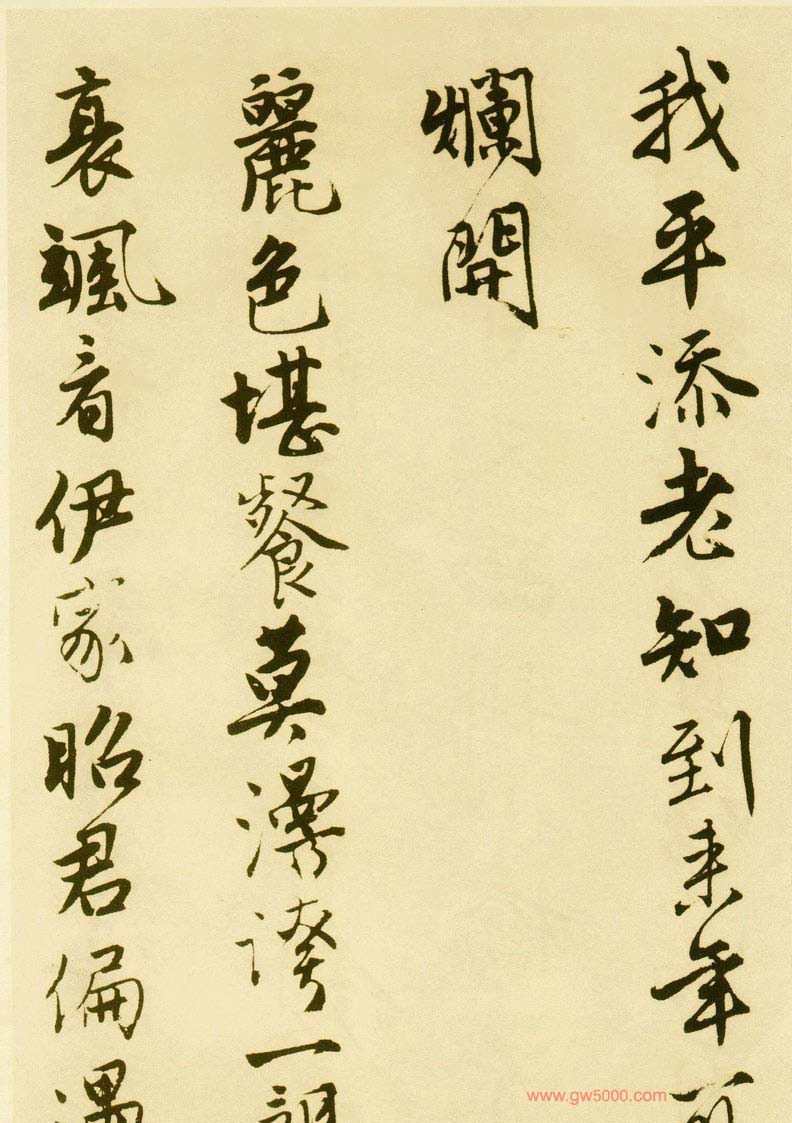 我平添老知到来年
爛開
麗色堪餐莫漫誇一
衰颯看伊家昭君偏遇
www.gw5000.com